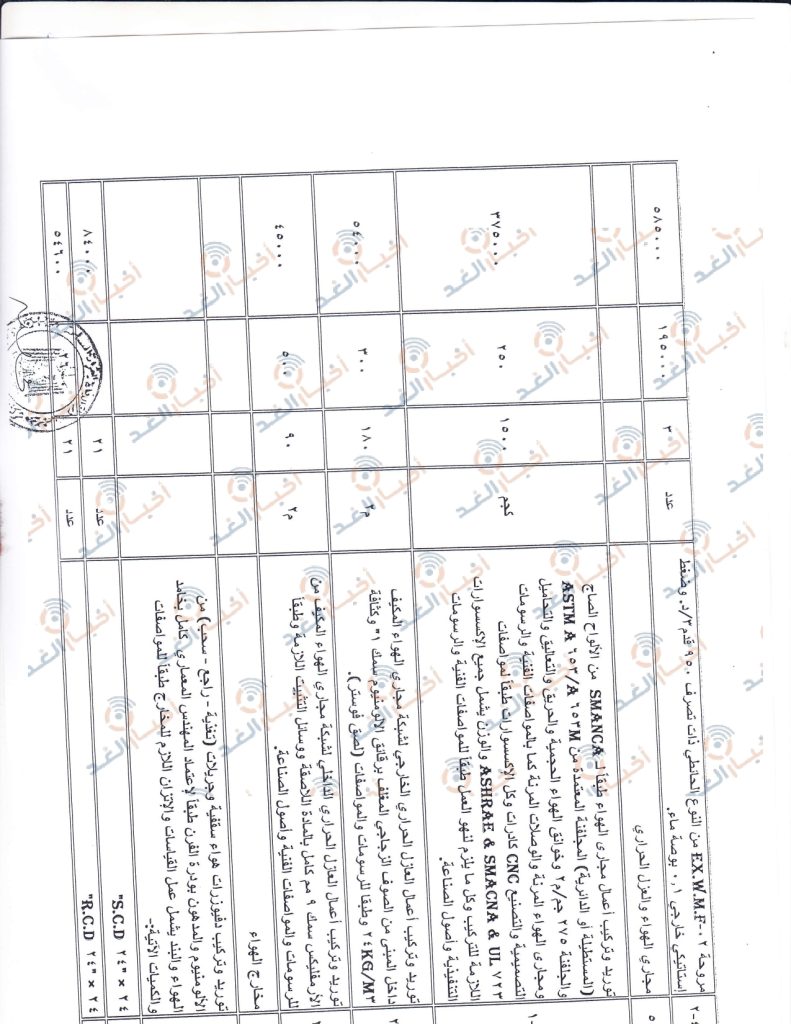 ٤-٢
مروحة EX.W.M.F-٠٢ من النوع الحائطي ذات تصرف ٩٥٠ قدم٣/د. وضغط
إستاتيكي خارجي ٠,١ بوصة ماء.
عدد
٣
١٩٥٠٠٠
٥٨٥٠٠٠
٥
مجاري الهواء والعزل الحراري
١-
توريد وتركيب أعمال مجاري الهواء طبقاً لـ SMANCA من الألواح الصاج
(المستطيلة أو الدائرية) المجلفنة المعتمدة من ASTM A ٦٥٣/A ٦٥٣M
والجلفنة ٢٧٥ جم/م٢ وخوانق الهواء الحجمية والحريق والتعاليق والتحاميل
ومجاري الهواء المرنة والوصلات المرنة كما بالمواصفات الفنية والرسومات
التصميمية والتصنيع CNC كادرات وكل الإكسسوارات طبقاً لمواصفات
ASHRAE & SMACNA & UL ٧٢٣ والوزن يشمل جميع الإكسسوارات
اللازمة للتركيب وكل ما يلزم لنهو العمل طبقاً للمواصفات الفنية والرسومات
التنفيذية وأصول الصناعة.
كجم
١٥٠٠
٢٥٠
٣٧٥٠٠٠
٢
توريد وتركيب أعمال العازل الحراري الخارجي لشبكة مجاري الهواء المكيف
داخل المبنى من الصوف الزجاجي المغلف برقائق الألومنيوم سمك ١" وكثافة
٢٤KG/M٣ وطبقاً للرسومات والمواصفات (لصق فوستر).
م٢
١٨٠
٣٠٠
٥٤٠٠٠
توريد وتركيب أعمال العازل الحراري الداخلي لشبكة مجاري الهواء المكيف من
الأرمفليكس سمك ٩ مم كامل بالمادة اللاصقة ووسائل التثبيت اللازمة وطبقاً
للرسومات والمواصفات الفنية وأصول الصناعة.
م٢
٩٠
٥٠٠
٤٥٠٠٠
مخارج الهواء
توريد وتركيب دفيوزرات هواء سقفية وجريلات (تغذية – راجع – سحب) من
الألومنيوم والمدهون بودرة الفرن طبقاً لإعتماد المهندس المعماري كامل بخامد
الهواء والبند يشمل عمل القياسات والإتزان اللازم للمخارج طبقاً للمواصفات
والكميات الآتية:-
S.C.D ٢٤" × ٢٤"
عدد
٢١
٨٤٠٠٠
R.C.D ٢٤" × ٢٤"
عدد
٢١
٢٦٠٠
٥٤٦٠٠
أخبار الغد